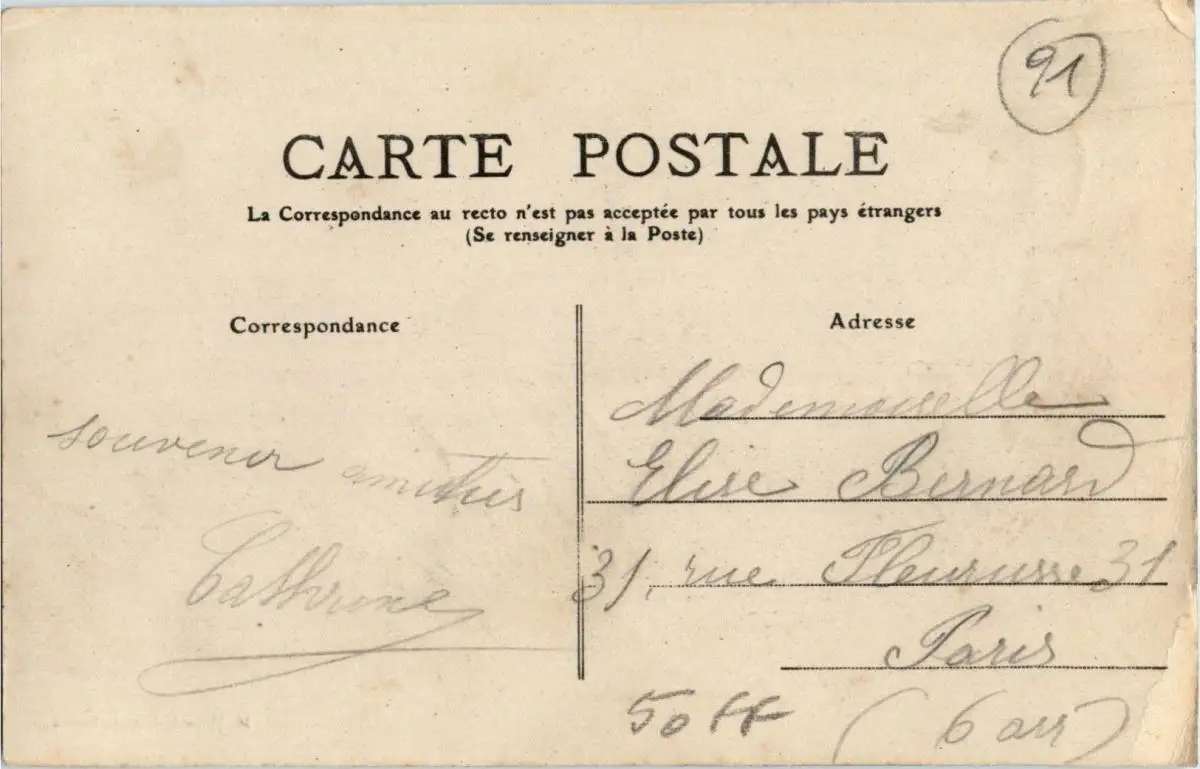 91
CARTE POSTALE
La Correspondance au recto n'est pas acceptée par tous les pays étrangers
(Se renseigner à la Poste)
Correspondance
Adresse
Mademoiselle
souvenir amitiés
Elise Bernard
Catherine
31, rue 31
Paris
50 FF
(6 arr)